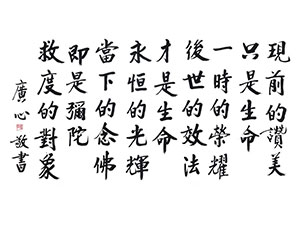 現前的讚美
只是生命
一時的榮耀
後世的效法
才是生命
永恒的光輝
當下的念佛
即是彌陀
救度的對象
廣心敬書